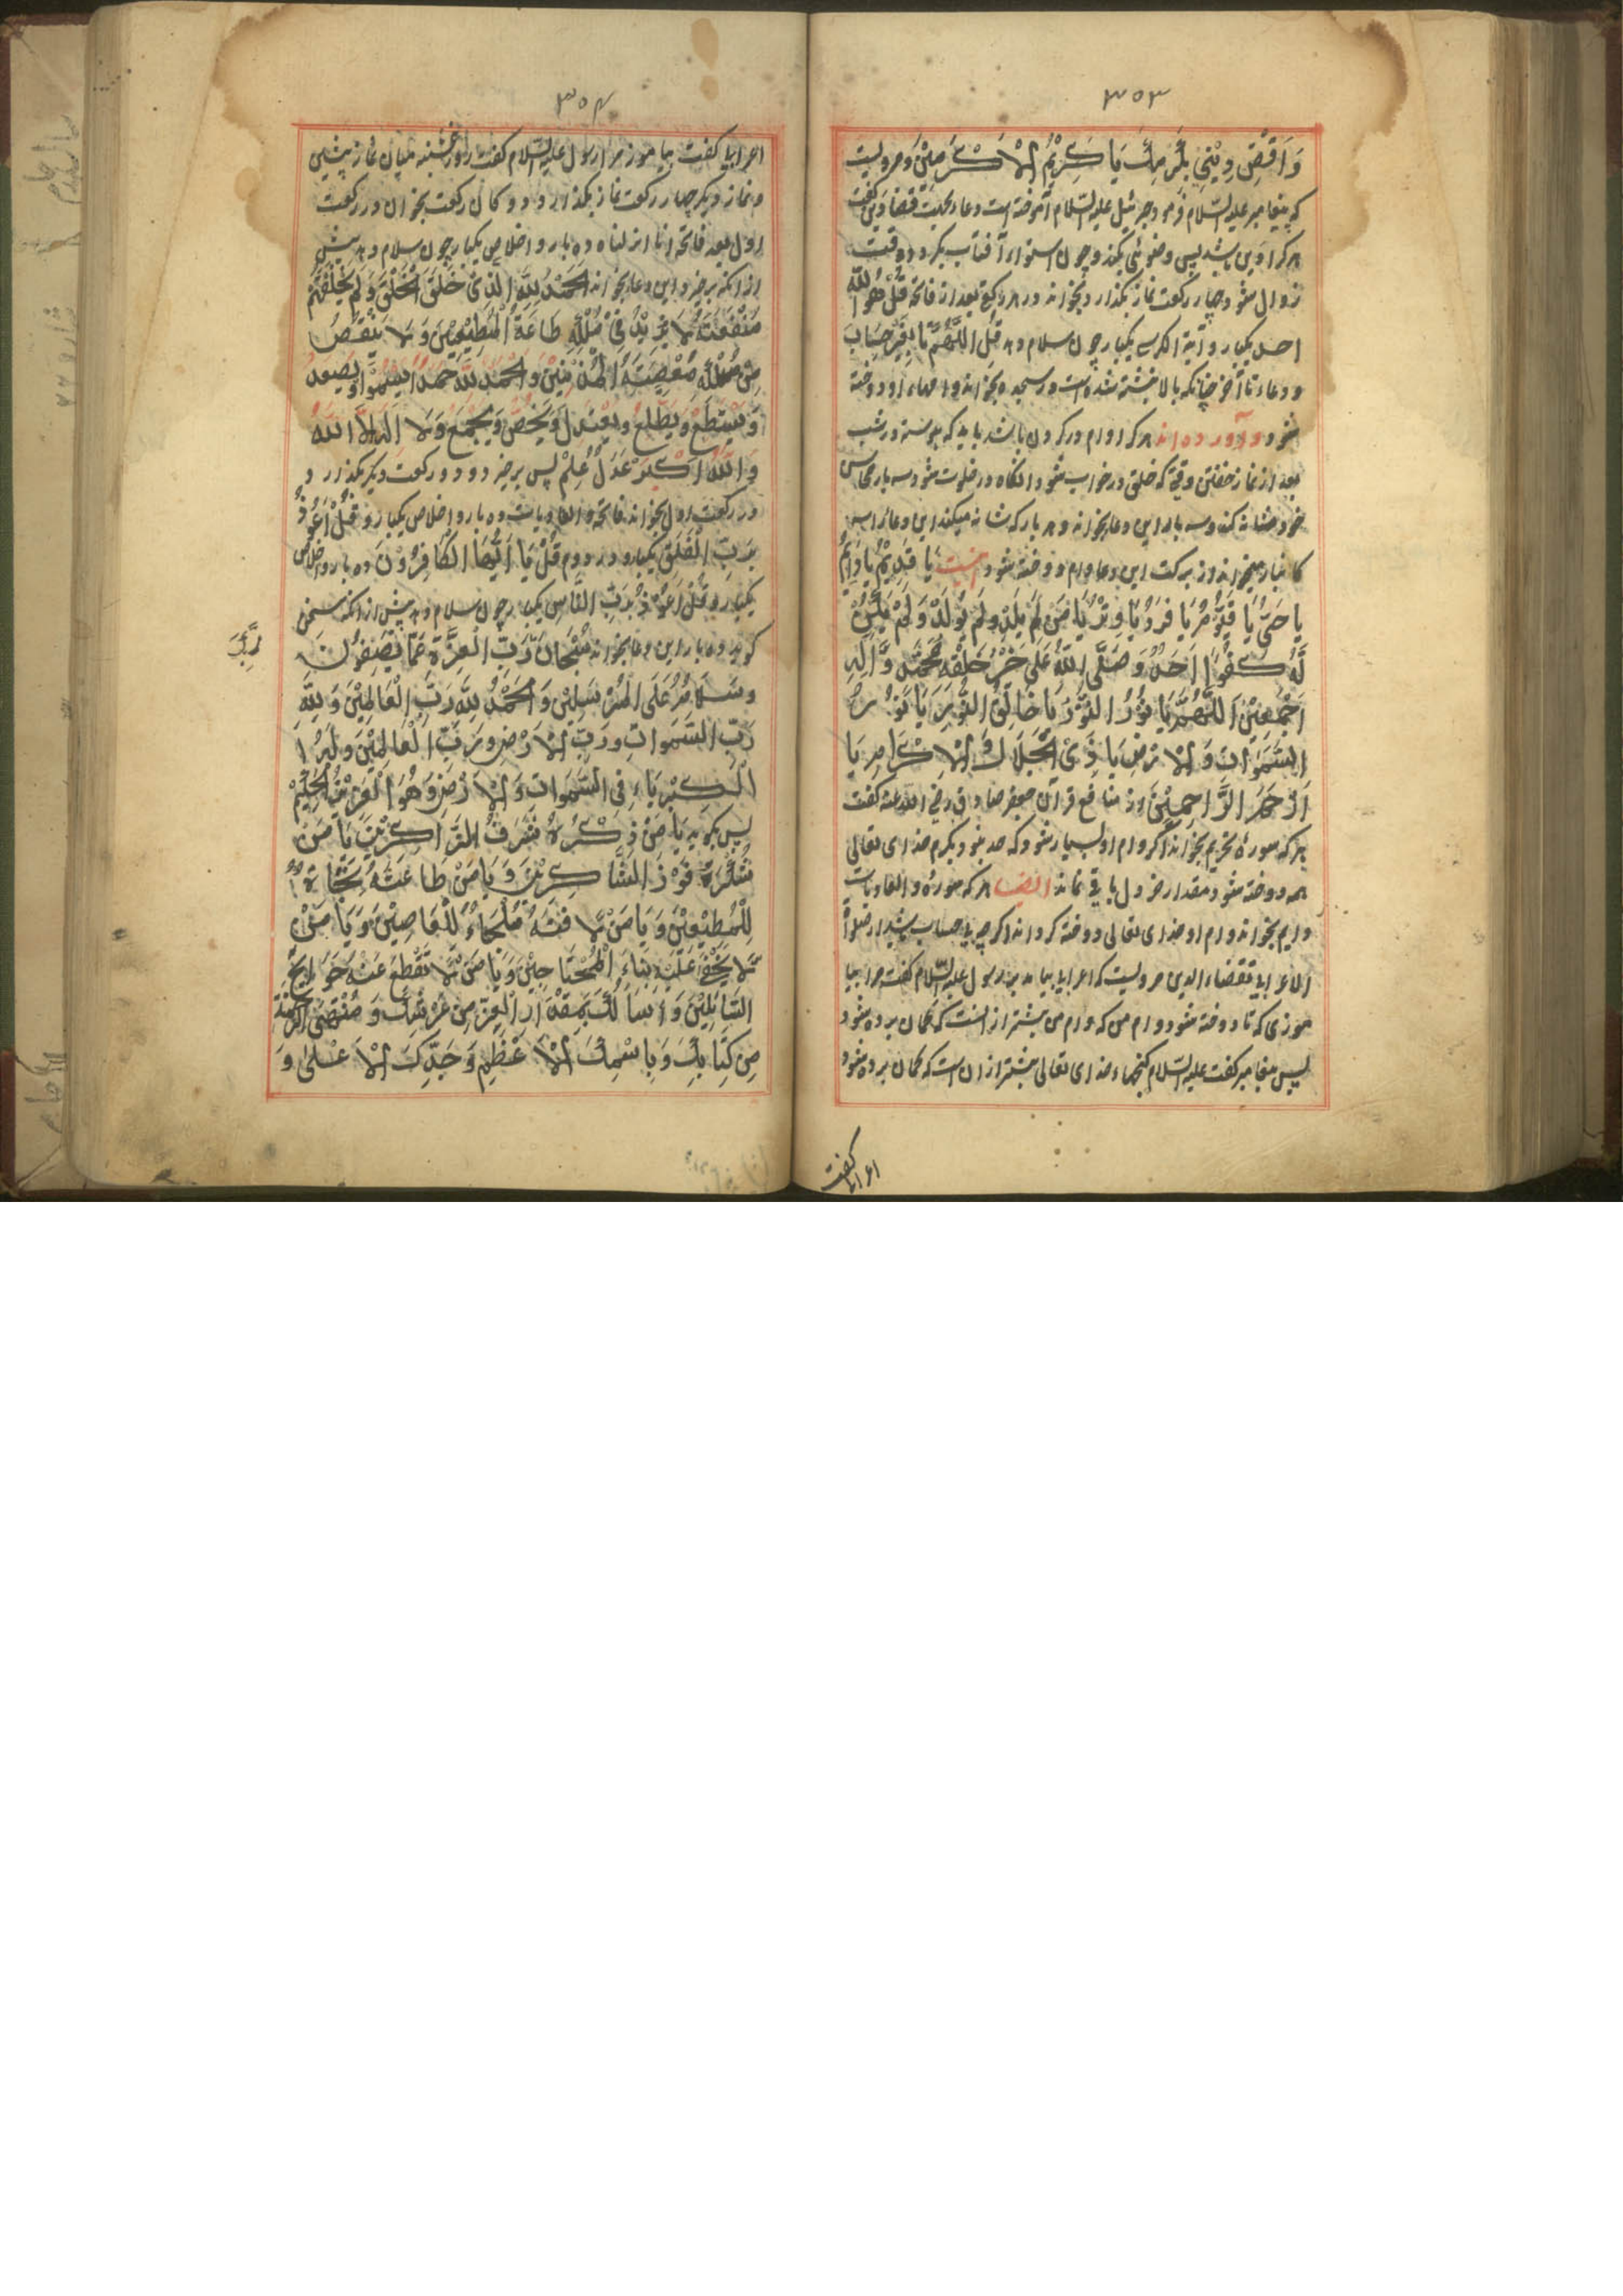 ۳۵۳
وَاَقْضِ دِيْنِيْ بِكَرَمِكَ يَا كَرِيْمُ الْاَكْرَمِيْنَ و مرویست
که پیغامبر علیه السّلام فرمود جبرئیل علیه السّلام آموخته است دعا بجهت قضا دین گفت
هرکرا دین باشد پس وضوئی بکند و چون استواء آفتاب بگردد و وقت
زوال شود چهار رکعت نماز بگذارد بخواند در هر رکعت بعد از فاتحه قُلْ هُوَ اللّٰهُ
احد یکبار و آیة الکرسی یکبار چون سلام دهد قُلِ اللّٰهُمَّ تا بِغَيْرِ حِسَابٍ
و دعاء تا آخر چنانکه بالا نبشته شده است در سجده بخواند وامهاء او دوخته
شود و آورده اند هرکرا وام در گردن باشد باید که پیوسته در شب
بعد از نماز خفتن وقتی که خلق در خواب شود انگاه در خلوت شود سه بار محاسن
خود شانه کند و سه بار این دعا بخواند و هر بار که شانه میکند این دعا را سه
کانبار میخواند از برکت این دعا وام دوخته شود اینست يَا قَدِيْمُ يَا دَايِمُ
يَا حَيُّ يَا قَيُّوْمُ يَا فَرْدُ يَا وِتْرُ يَا مَنْ لَمْ يَلِدْ وَلَمْ يُوْلَدْ وَلَمْ يَكُنْ
لَّهُ كُفُوًا اَحَدٌ وَ صَلَّى اللّٰهُ عَلٰى خَيْرِ خَلْقِهٖ مُحَمَّدٍ وَّ اٰلِهٖ
اَجْمَعِيْنَ اَللّٰهُمَّ يَا نُوْرَ النُّوْرِ يَا خَالِقَ النُّوْرِ يَا نُوْرُ
السَّمٰوَاتِ وَالْاَرْضِ يَا ذِي الْجَلَالِ وَالْاِكْرَامِ يَا
اَرْحَمَ الرَّاحِمِيْنَ از منافع قرآن جعفر صادق رضی الله عنه گفت
هرکه سوره تحریم بخواند اگر وام او بسیار شود که صد بنود بکرم خدای تعالی
همه دوخته شود مقدار خردل باقی نماند ایضا هرکه سوره والعادیات
دایم بخواند وام او خدای تعالی دوخته گرداند اگر چه بی حساب باشد از صلوة
الاعرابی تقضاء الدین مرویست که اعرابی بیامد بر رسول علیه السّلام گفت مرا بیا
موزی که تا دوخته شود وام من که وام من بیشتر از انست که گمان برده شود
پس پیغامبر گفت علیه السّلام گنجهاء خدای تعالی بیشتر از ان است که گمان برده شود
اعرابی گفت
۳۵۴
اعرابی گفت بیاموز مرا رسول علیه السّلام گفت روز پنجشنبه میان نماز پیشین
و نماز دیگر چهار رکعت نماز بگذار و دوگان رکعت بخوان در رکعت
اول بعد فاتحه انا انزلناه ده بار و اخلاص یکبار چون سلام دهد پیش
از انکه برخیزد این دعا بخواند اَلْحَمْدُ لِلّٰهِ الَّذِيْ خَلَقَ الْخَلْقَ وَلَمْ يَخْلُقْهُمْ
مَنْفَعَتَهُ لَا يَزِيْدُ فِيْ مُلْكِهٖ طَاعَةُ الْمُطِيْعِيْنَ وَ لَا يَنْقُصُ
مِنْ مُلْكِهٖ مَعْصِيَةُ الْمُذْنِبِيْنَ وَ الْحَمْدُ لِلّٰهِ حَمْدًا
وَ يَسْتَطِعُ وَ يَطَّلِعُ وَ يَعْدِلُ وَ يَخُصُّ وَ يَجْمَعُ وَ لَا اِلٰهَ اِلَّا اللّٰهُ
وَ اللّٰهُ اَكْبَرُ عَدَلُ عِلْمٍ پس برخیزد و دو رکعت دیگر بگذارد و
در رکعت اول بخواند فاتحه و العادیات ده بار و اخلاص یکبار و قُلْ اَعُوْذُ
بِرَبِّ الْفَلَقِ یکبار و در دوم قُلْ يَا اَيُّهَا الْكَافِرُوْنَ ده بار و اخلاص
یکبار و قُلْ اَعُوْذُ بِرَبِّ النَّاسِ یکبار چون سلام دهد پیش از انکه سخن
گوید ده بار این دعا بخواند سُبْحَانَ رَبِّ الْعِزَّةِ عَمَّا يَصِفُوْنَ
رَبِّكَ
وَسَلَامٌ عَلَى الْمُرْسَلِيْنَ وَ الْحَمْدُ لِلّٰهِ رَبِّ الْعَالَمِيْنَ وَ لِلّٰهِ
رَبِّ السَّمٰوَاتِ وَ رَبِّ الْاَرْضِ وَ رَبِّ الْعَالَمِيْنَ وَ لَهُ
الْكِبْرِيَاءُ فِي السَّمٰوَاتِ وَالْاَرْضِ وَهُوَ الْعَزِيْزُ الْحَكِيْمُ
پس بگوید يَا مَنْ ذِكْرُهُ شَرَفُ الذَّاكِرِيْنَ يَا مَنْ
شُكْرُهُ فَوْزُ الشَّاكِرِيْنَ وَ يَا مَنْ طَاعَتُهُ نَجَاةٌ
لِلْمُطِيْعِيْنَ وَ يَا مَنْ مَلْجَاءٌ لِلْعَاصِيْنَ وَ يَا مَنْ
لَّا يَخْفٰى عَلَيْهِ الْمُحْتَاجِيْنَ وَ يَا مَنْ لَّا تَقْطَعُ عَنْهُ حَوَايِجُ
السَّائِلِيْنَ وَ اَسْأَلُكَ بِمِقْدَارِ الْعِزِّ مِنْ عَرْشِكَ وَ مُنْتَهَى الرَّحْمَةِ
مِنْ كِتَابِكَ وَ بِاسْمِكَ الْاَعْظَمِ وَ جَدِّكَ الْاَعْلٰى وَ